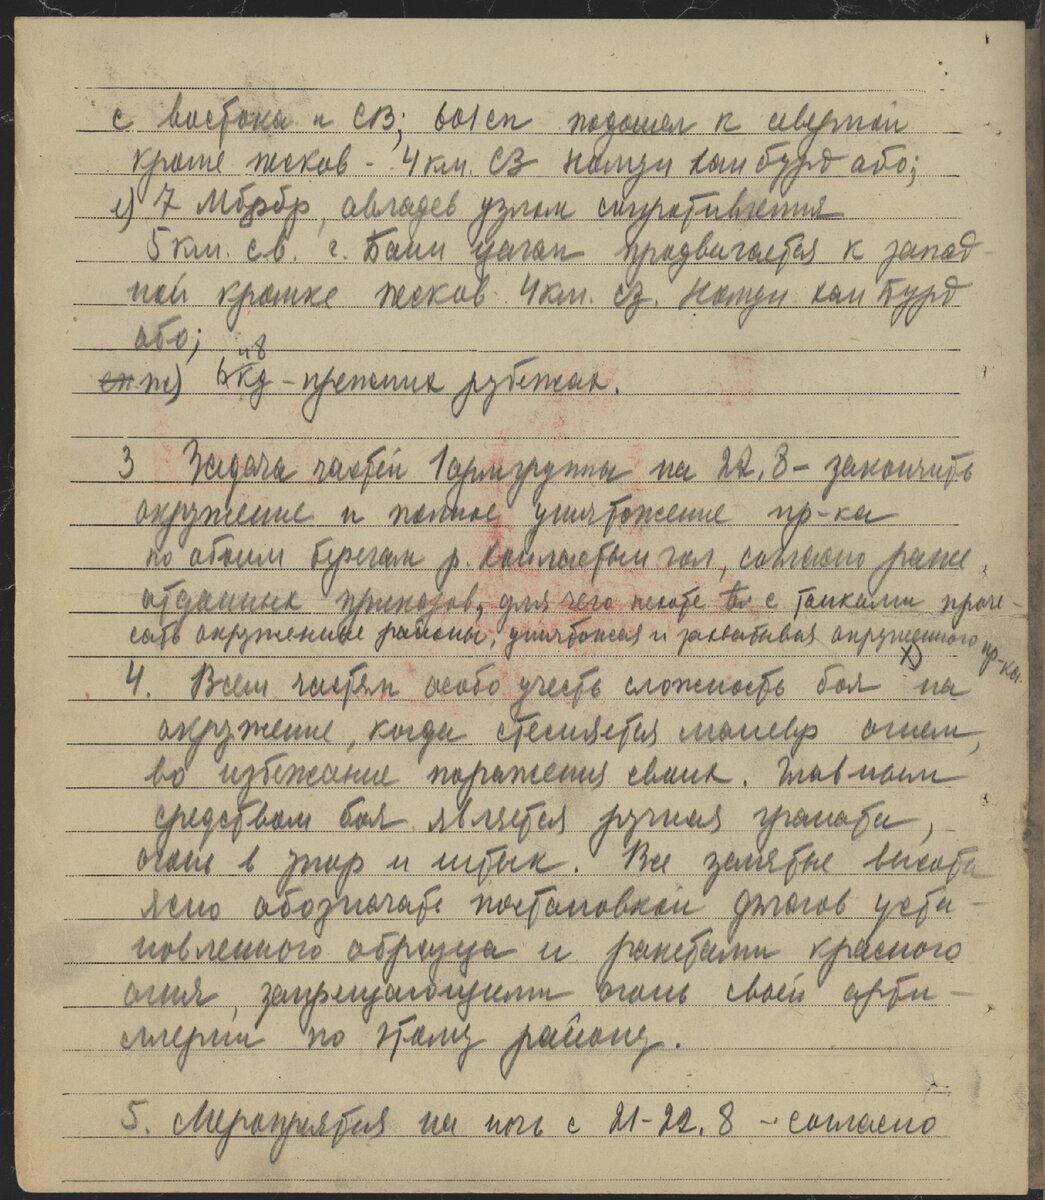 с востока и СВ; 601 сп подошел к северной
кромке песков - 4 км. СЗ Номун хан бурд обо;
е) 7 Мббр, овладев узлом сопротивления
5 км. с.в. г. Баин цаган продвигается к запад-
ной кромке песков 4 км. сз. Номун хан Бурд
обо;
ж) 6 и 8 кд - прежних рубежах.
3 Задача частей 1 армгруппы на 22.8 - закончить
окружение и полное уничтожение пр-ка
по обоим берегам р. Хайластын гол, согласно ранее
отданных приказов, для чего пехоте с танками проче-
сать окруженные районы, уничтожая и захватывая окруженного пр-ка.
4. Всем частям особо учесть сложность боя на
окружение, когда стесняется маневр огнем,
во избежание поражения своих. Главным
средством боя является ручная граната,
огонь в упор и штык. Все занятые высоты
ясно обозначать постановкой флагов уста-
новленного образца и ракетами красного
огня, запрещающими огонь своей арти-
ллерии по этому району.
5. Мероприятия на ночь с 21-22.8 - согласно